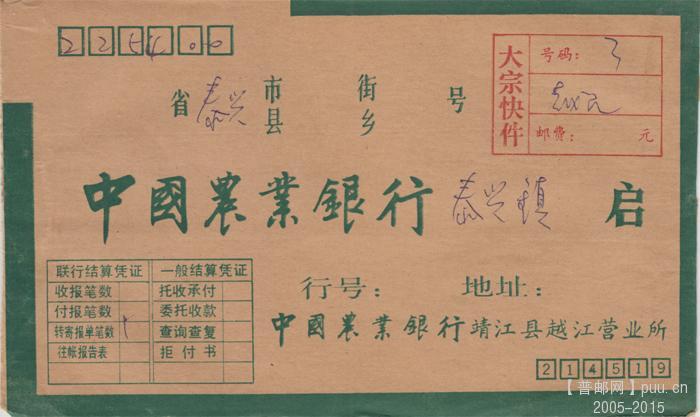 225400
大宗快件
号码: 3
越江
邮费: 元
省 泰兴 市县 街乡 号
中國農業銀行 泰兴镇 启
联行结算凭证 一般结算凭证
收报笔数 托收承付
付报笔数 委托收款
转寄报单笔数 查询查复
往帐报告表 拒付书
行号: 地址:
中國農業銀行靖江县越江营业所
214519
【普邮网】puu.cn
2005-2015